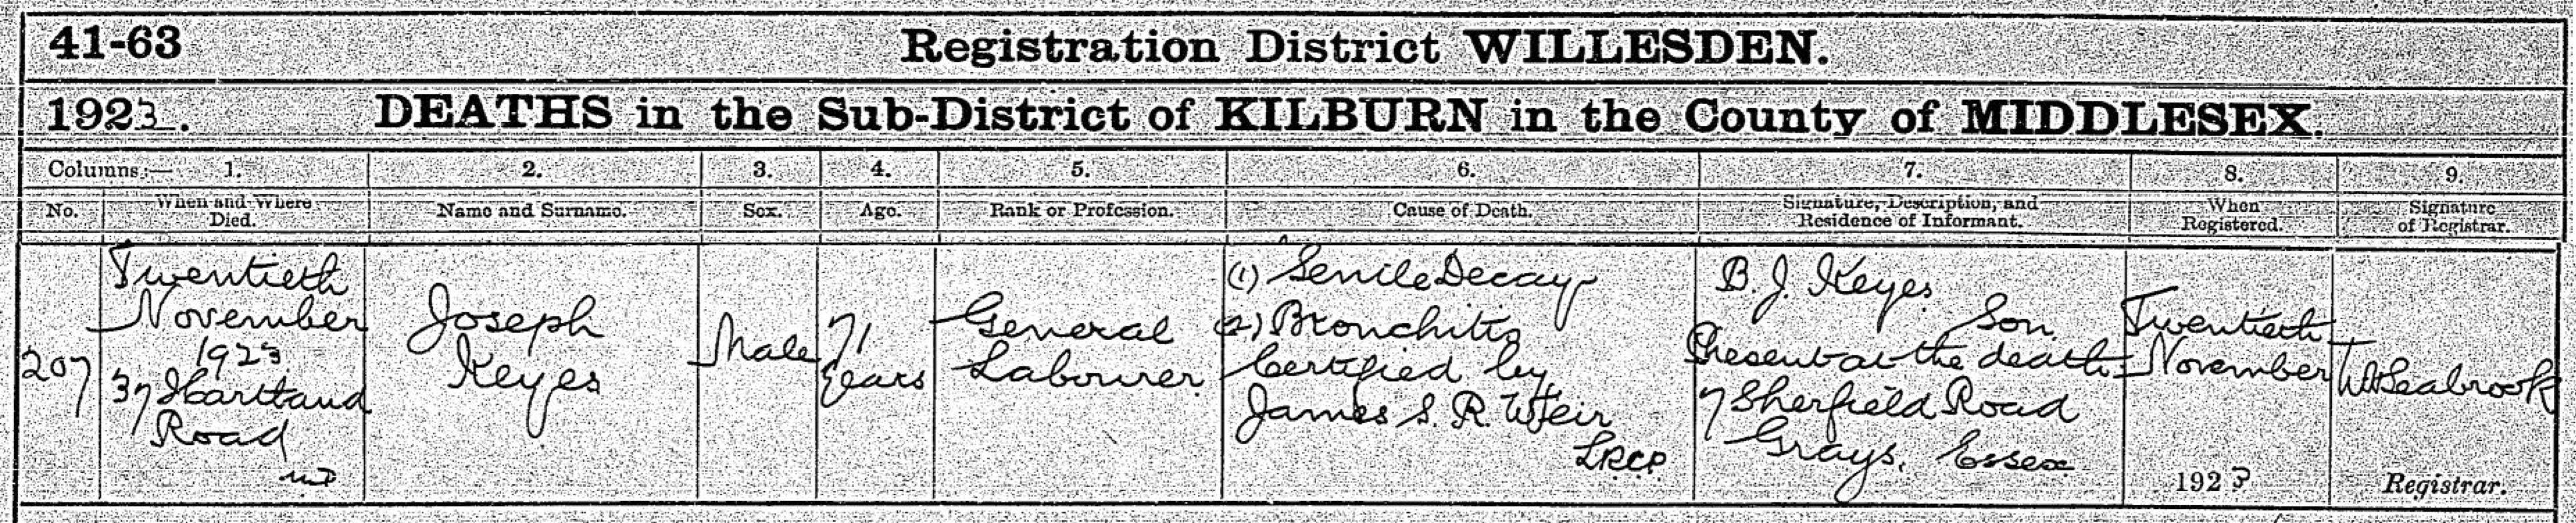 41-63 Registration District WILLESDEN.
1923. DEATHS in the Sub-District of KILBURN in the County of MIDDLESEX.
Columns:— 1. 2. 3. 4. 5. 6. 7. 8. 9.
No. When and Where Died. Name and Surname. Sex. Age. Rank or Profession. Cause of Death. Signature, Description, and Residence of Informant. When Registered. Signature of Registrar.
207
Twentieth
November
1923
37 Hartland
Road
UD
Joseph
Keyes
Male
71
years
General
Labourer
(1) Senile Decay
(2) Bronchitis
Certified by
James S. R. Weir
LRCP
B. J. Keyes
Son
Present at the death
7 Sherfield Road
Grays, Essex
Twentieth
November
1923
W Seabrook
Registrar.